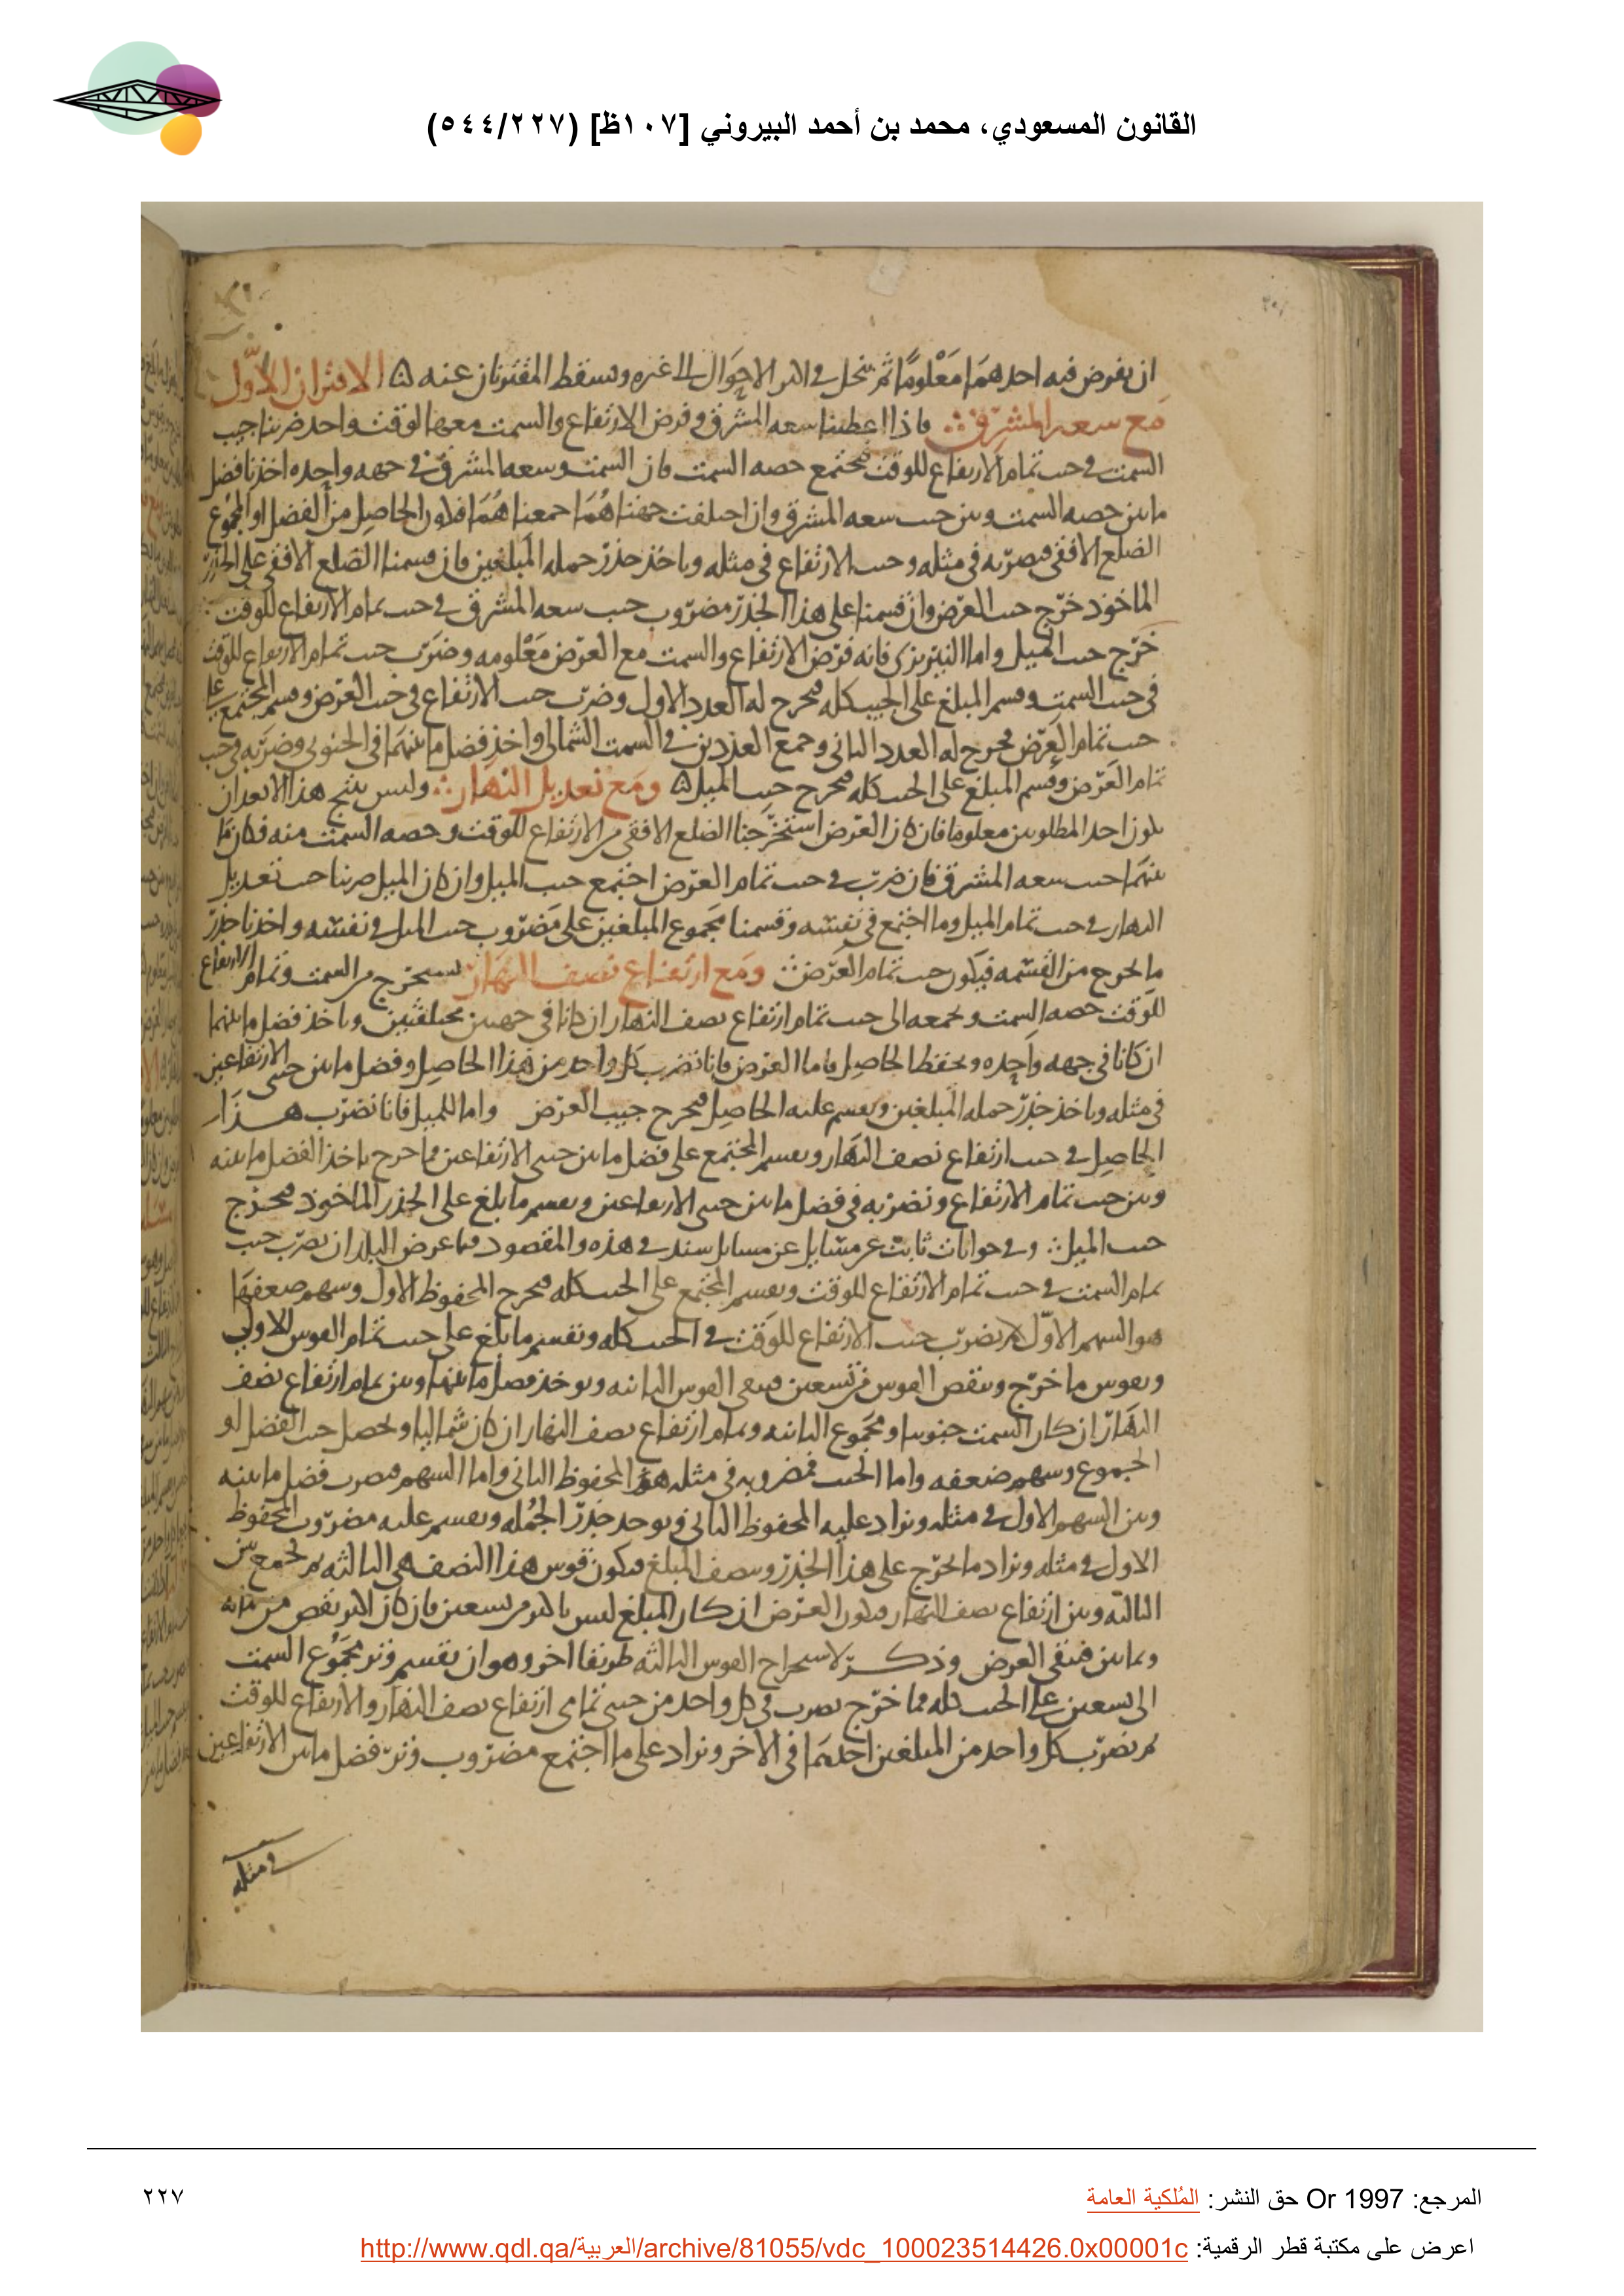 القانون المسعودي، محمد بن أحمد البيروني [١٠٧ظ] (٥٤٤/٢٢٧)
ان يفرض فيه احدهما معلوما ثم ينحل في اكثر الاحوال الى غيره ويسقط المقترنان عنه ه الاقتران الاول
مع سعه المشرق ∴ فاذا اعطينا سعه المشرق وفرض الارتفاع والسمت معها لوقت واحد ضربنا جيب
السمت في جيب تمام الارتفاع للوقت فيجتمع حصه السمت فان السمت وسعه المشرق في جهه واحده اخذنا فضل
ما بين حصه السمت وبين جيب سعه المشرق وان اختلفت جهتاهما جمعناهما فيكون الحاصل من الفضل او المجموع
الضلع الافقي فيضربه في مثله وجيب الارتفاع في مثله وياخذ جذر جمله المبلغين فان قسمنا الضلع الافقي على الجذر
الماخوذ خرج جيب العرض وان قسمنا على هذا الجذر مضروب جيب سعه المشرق في جيب تمام الارتفاع للوقت ∴
خرج جيب الميل واما النيريزى فانه فرض الارتفاع والسمت مع العرض معلومه وضرب جيب تمام الارتفاع للوقت
في جيب السمت وقسم المبلغ على الجيب كله فخرج له العدد الاول وضرب جيب الارتفاع في جيب العرض وقسم المجتمع على
جيب تمام العرض فخرج له العدد الثاني وجمع العددين في السمت الشمالي واخذ فضل ما بينهما في الجنوبي وضربه في جيب
تمام العرض وقسم المبلغ على الجيب كله فخرج جيب الميل ه ومع تعديل النهار ∴ وليس ينتج هذا الا بعد ان
يكون احد المطلوبين معلوما فان كان العرض استخرجنا الضلع الافقي من الارتفاع للوقت وحصه السمت منه فكان ما
بينهما جيب سعه المشرق فان ضرب في جيب تمام العرض اجتمع جيب الميل وان كان الميل ضربنا جيب تعديل
النهار في جيب تمام الميل وما اجتمع في نفسه وقسمنا مجموع المبلغين على مضروب جيب الميل في نفسه واخذنا جذر
ما يخرج من القسمه فيكون جيب تمام العرض ∴ ومع ارتفاع نصف النهار ∴ نستخرج من السمت وتمام الارتفاع
للوقت حصه السمت ونجمعه الى جيب تمام ارتفاع نصف النهار ان كانا في جهتين مختلفتين وياخذ فضل ما بينهما
ان كانا في جهه واحده ويحفظ الحاصل فاما العرض فانا نضرب كل واحد من هذا الحاصل وفضل ما بين جيبي الارتفاعين
في مثله وياخذ جذر جمله المبلغين ويقسم عليه الحاصل فيخرج جيب العرض واما للميل فانا نضرب هذا
الحاصل في جيب ارتفاع نصف النهار ويقسم المجتمع على فضل ما بين جيبي الارتفاعين فما خرج ياخذ الفضل ما بينه
وبين جيب تمام الارتفاع ونضربه في فضل ما بين جيبي الارتفاعين ويقسم ما بلغ على الجذر الماخوذ فيخرج
جيب الميل ∴ وفي جوابات ثابت عن مسايل عن مسايل سند في هذه والمقصود فيها عرض البلد ان يضرب جيب
تمام السمت في جيب تمام الارتفاع للوقت ويقسم المجتمع على الجيب كله فيخرج المحفوظ الاول وسهم ضعفها
هو السهم الاول ثم يضرب جيب الارتفاع للوقت في الجيب كله ونقسم ما بلغ على جيب تمام القوس الاولى
ويقوس ما خرج وينقص القوس من تسعين فيبقى القوس الثانيه ويوخذ فضل ما بينها وبين تمام ارتفاع نصف
النهار ان كان السمت جنوبيا ومجموع الثانيه وتمام ارتفاع نصف النهار ان كان شماليا ويحصل جيب الفضل او
المجموع وسهم ضعفه واما الجيب فمضروبه في مثله هو المحفوظ الثاني واما السهم فيضرب فضل ما بينه
وبين السهم الاول في مثله ويزاد عليه المحفوظ الثاني ويوخذ جذر الجمله ويقسم عليه مضروب المحفوظ
الاول في مثله ويزاد ما يخرج على هذا الجذر وينصف المبلغ فيكون قوس هذا النصف هي الثالثه ثم يجمع بين
الثالثه وبين ارتفاع نصف النهار فيكون العرض ان كان المبلغ ليس باكثر من تسعين فان كان اكثر نقص من مايه
وثمانين فيبقى العرض وذكر لاستخراج القوس الثالثه طريقا اخر وهو ان نقسم وتر مجموع السمت
الى تسعين على الجيب كله فما خرج يضرب في كل واحد من جيبي تمامي ارتفاع نصف النهار والارتفاع للوقت
ثم يضرب كل واحد من المبلغين احدهما في الاخر ويزاد على ما اجتمع مضروب وتر فضل ما بين الارتفاعين
في مثله
المرجع: Or 1997 حق النشر: المُلكية العامة
٢٢٧
اعرض على مكتبة قطر الرقمية: http://www.qdl.qa/العربية/archive/81055/vdc_100023514426.0x00001c